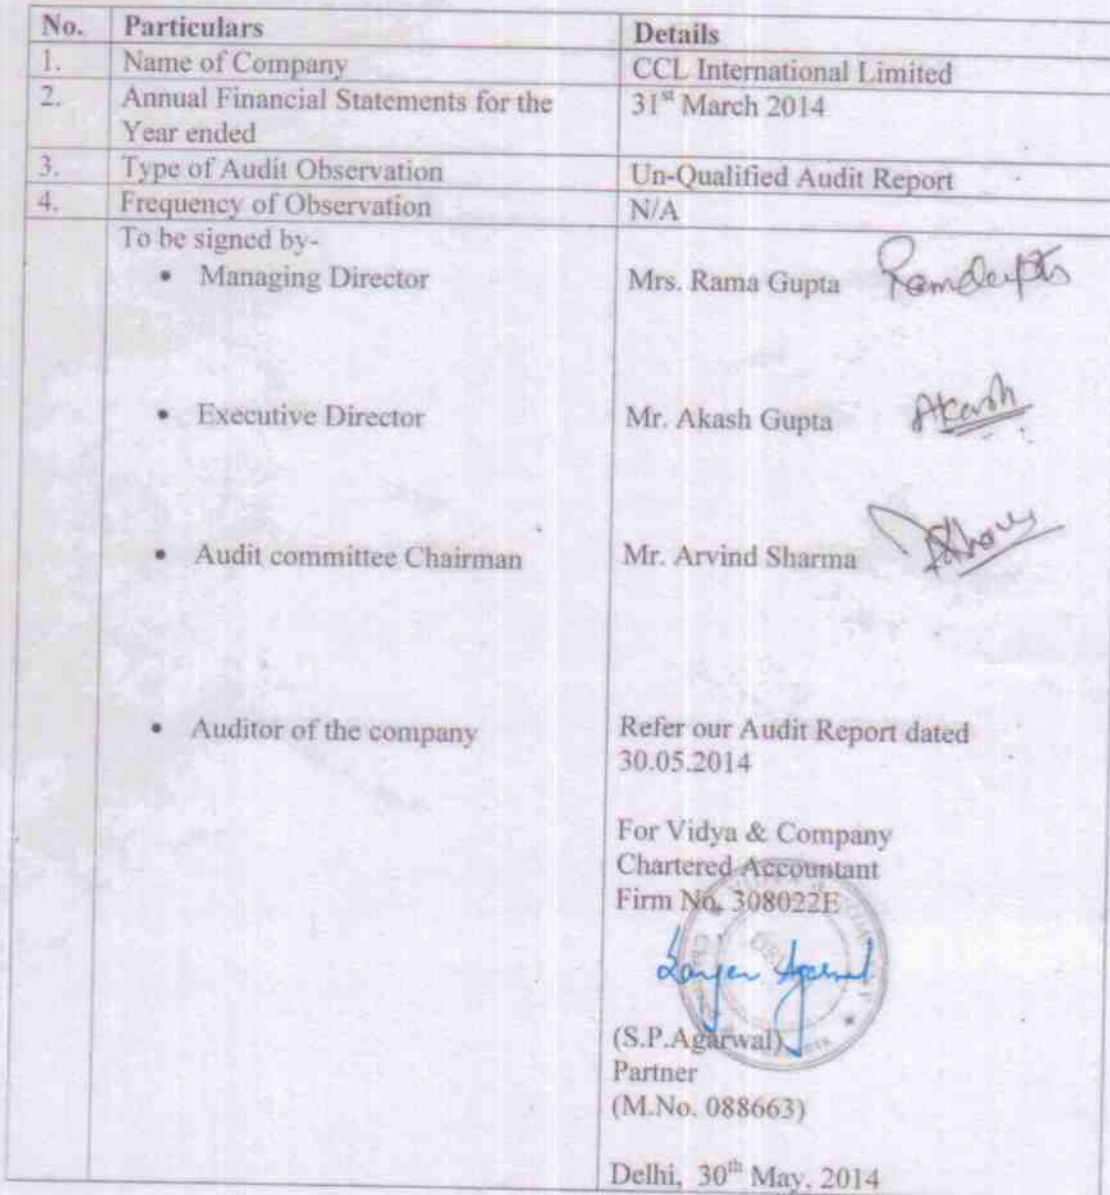 No. Particulars Details
1. Name of Company CCL International Limited
2. Annual Financial Statements for the 31st March 2014
Year ended
3. Type of Audit Observation Un-Qualified Audit Report
4. Frequency of Observation N/A
To be signed by-
• Managing Director Mrs. Rama Gupta
• Executive Director Mr. Akash Gupta Akash
• Audit committee Chairman Mr. Arvind Sharma
• Auditor of the company Refer our Audit Report dated
30.05.2014
For Vidya & Company
Chartered Accountant
Firm No. 308022E
(S.P.Agarwal)
Partner
(M.No. 088663)
Delhi, 30th May, 2014